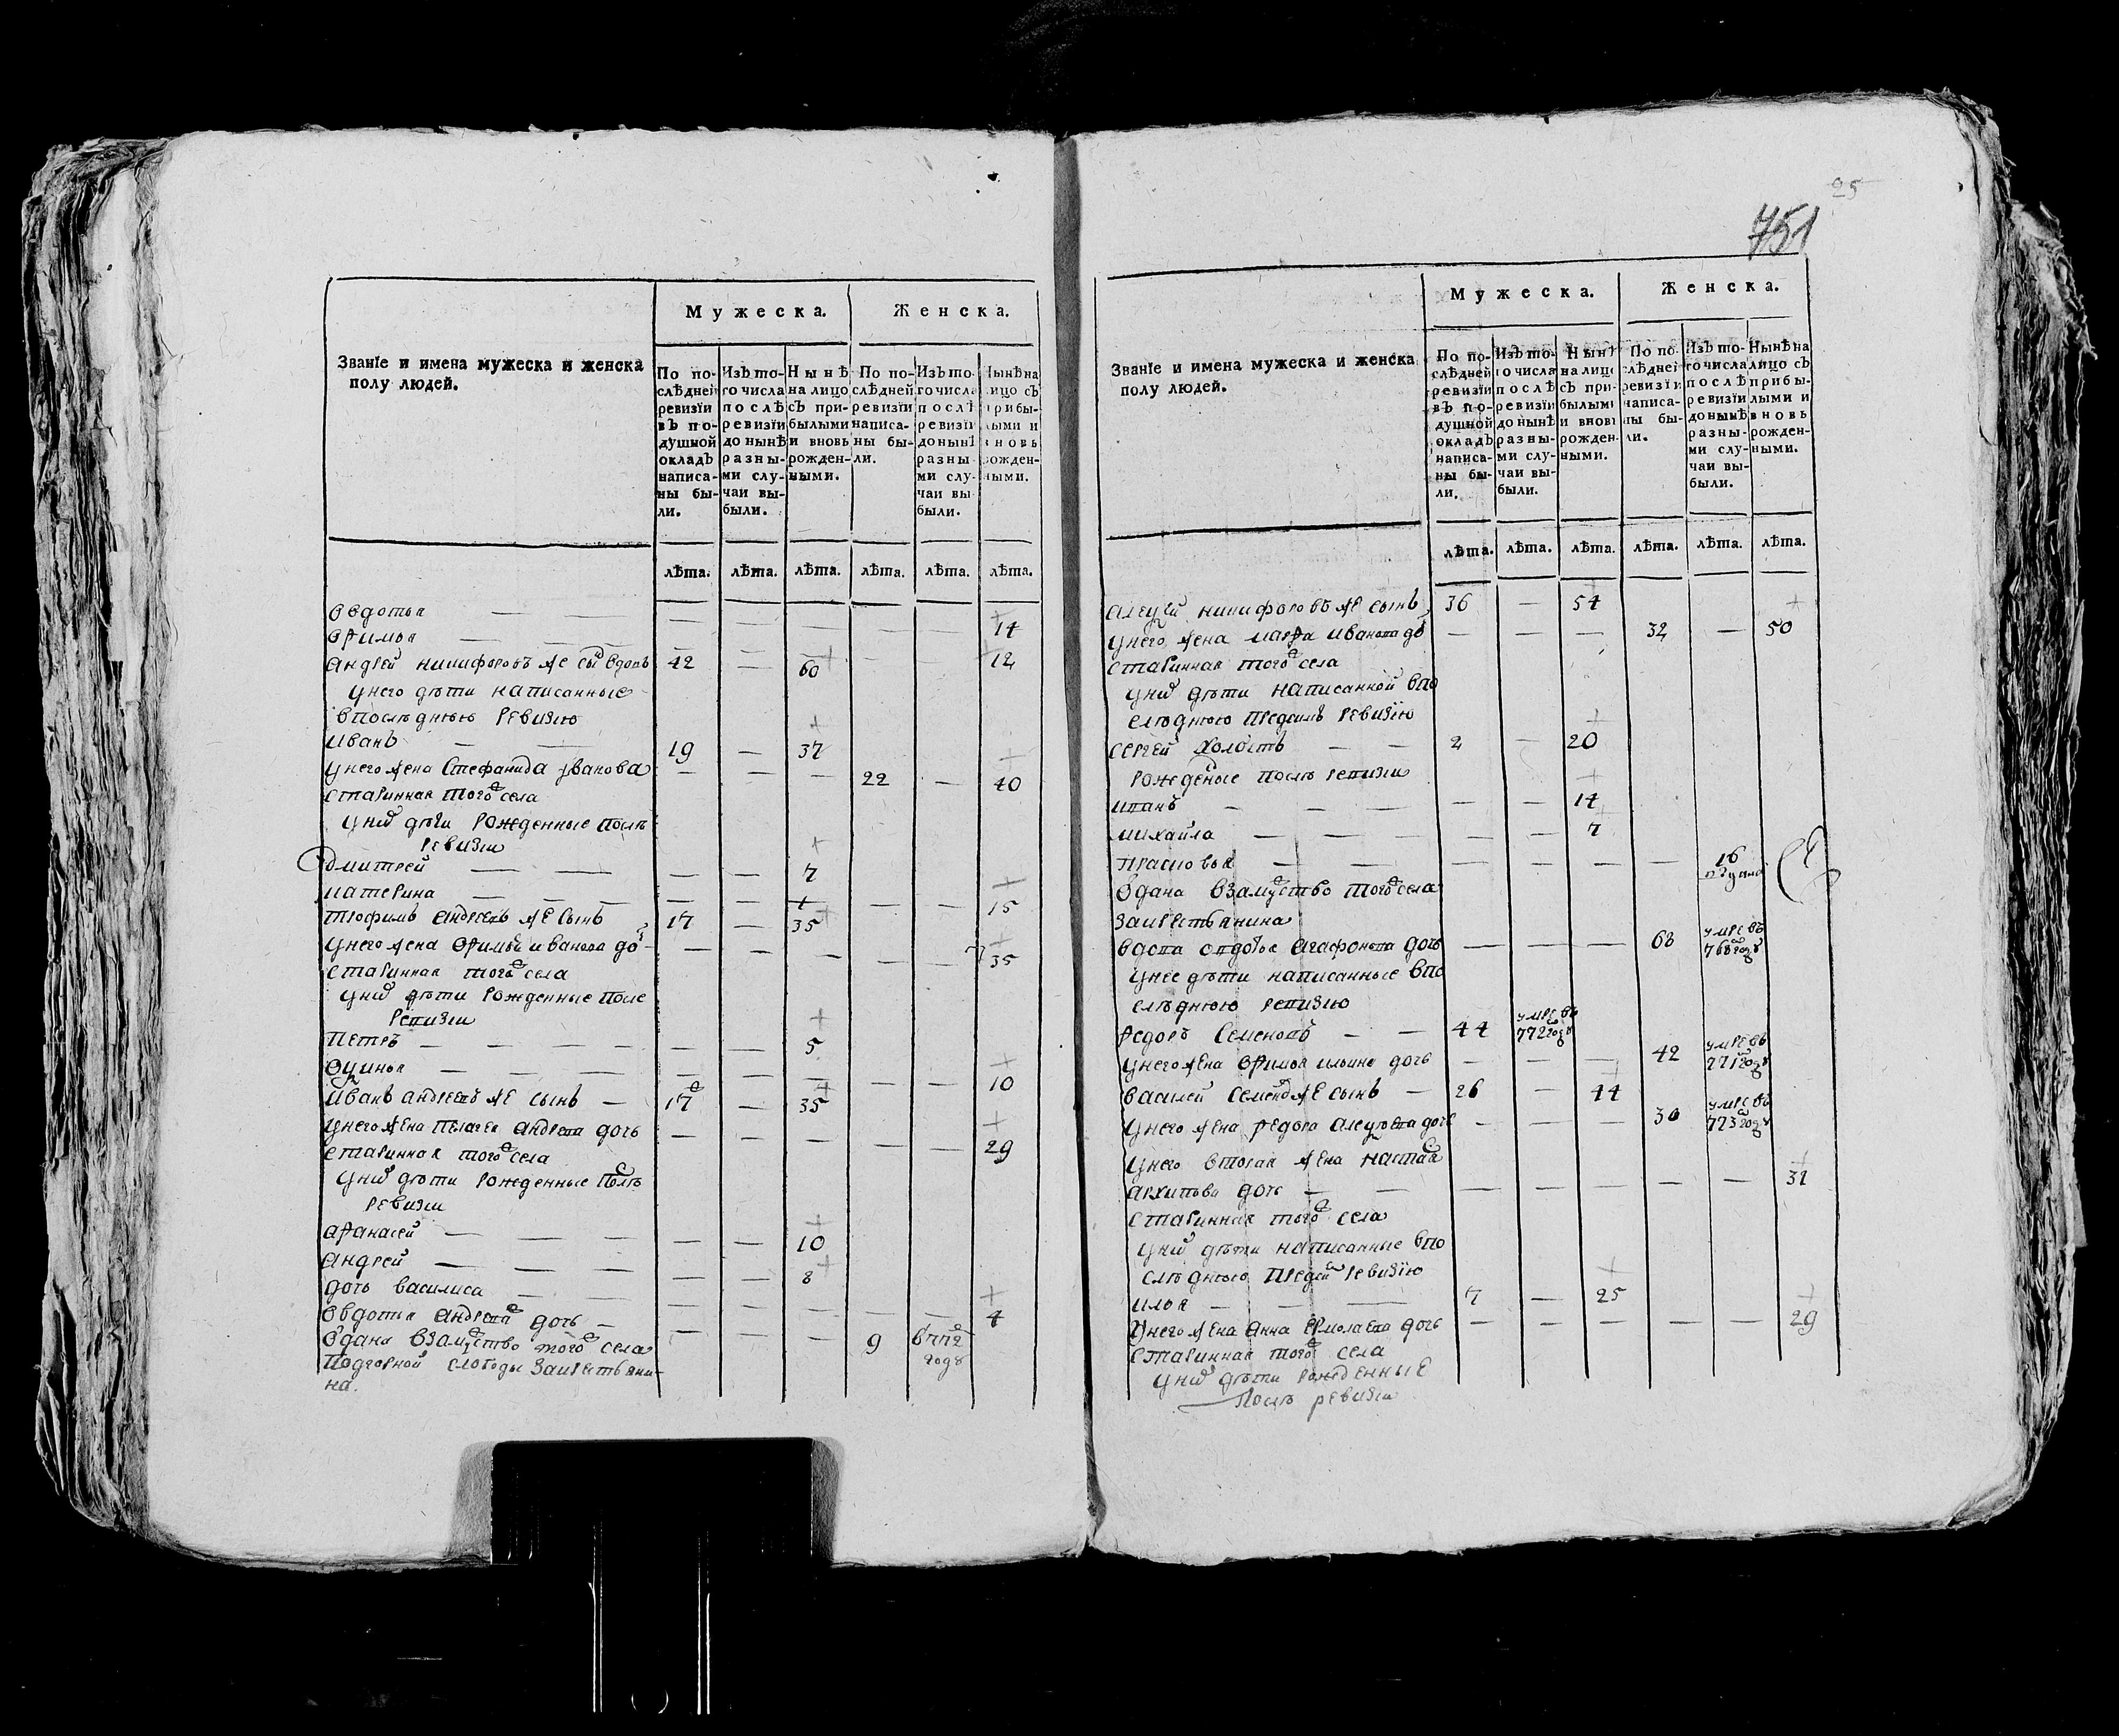 Мужеска. Женска.
Званїе и имена мужеска и женска
полу людей.
По по-
слѣдней
ревизїи
въ по-
душной
окладъ
написа-
ны бы-
ли.
Изъ то-
го числа
послѣ
ревизїи
до нынѣ
разны-
ми слу-
чаи вы-
были.
Нынѣ
на лицо
съ при-
былыми
и вновь
рожден-
ными.
По по-
слѣдней
ревизїи
написа-
ны бы-
ли.
Изъ то-
го числа
послѣ
ревизїи
до нынѣ
разны-
ми слу-
чаи вы-
были.
Нынѣ на
лицо съ
прибы-
лыми и
вновь
рожден-
ными.
лѣта. лѣта. лѣта. лѣта. лѣта. лѣта.
Овдотья — — 14
Офимья — — 12
Андрей никифоровъ же сынъ вдовъ 42 — 60
унего дѣти написанные
впослѣднюю ревизию
Иванъ — — 19 — 37
унего жена Стефанида иванова — — — 22 — 40
старинная тогож села
уних дѣти рожденные послѣ
ревизии
Дмитрей — — — — 7
катерина — — — — — — 15
трофимъ андреевъ же сынъ 17 — 35
унего жена Офимья иванова дочь — — — — — 35
старинная тогож села
уних дѣти рожденные после
ревизии
Петръ — — — — 5
Оуинья — — — — — — 10
Иванъ андреевъ же сынъ — 17 — 35
унего жена пелагея андреева дочь — — — — — 29
старинная тогож села
уних дѣти рожденные послѣ
ревизии
афанасей — — — — 10
Андрей — — — — 8
дочь василиса — — — — — — 4
Овдотья андреева дочь — — — — 9 в 772
годе
Одана взамужство тогож села
Подгорной слободы закрестьяни-
на.
25
751
Мужеска. Женска.
Званїе и имена мужеска и женска
полу людей.
По по-
слѣдней
ревизїи
въ по-
душной
окладъ
написа-
ны бы-
ли.
Изъ то-
го числа
послѣ
ревизїи
до нынѣ
разны-
ми слу-
чаи вы-
были.
Нынѣ
на лицо
съ при-
былыми
и вновь
рожден-
ными.
По по-
слѣдней
ревизїи
написа-
ны бы-
ли.
Изъ то-
го числа
послѣ
ревизїи
до нынѣ
разны-
ми слу-
чаи вы-
были.
Нынѣ на
лицо съ
прибы-
лыми и
вновь
рожден-
ными.
лѣта. лѣта. лѣта. лѣта. лѣта. лѣта.
никифоровъ же сынъ 36 — 54
унего жена марфа иванова до — — — 32 — 50
старинная тогож села
уних дѣти написанной впо
слѣднюю предсимъ ревизїю
Сергей холостъ — — 2 — 20
рожденые послѣ ревизии
иванъ — — — — — 14
михайла — — — — — 7
прасковья — — — — — — 16
Одана взамужство тогож села
закрестьянина
вдова овдотья агафонова дочь — — — 68 умре въ
768 годъ
унее дѣти написанные впо
слѣднюю ревизию
федоръ Семеновъ — — 44 умре въ
772 годъ
унего жена Офимья ильина дочь — — — 42 умре въ
771 годъ
василей семенов же сынъ — 26 — 44
унего жена федора дочь — — — 30 умре въ
773 годъ
унего вторая жена настасья
архипова дочь — — — — — — — 31
старинная тогож села
уних дѣти написанные впо
слѣднюю предсим ревизїю
илья — — — 7 — 25
унего жена анна ермолаева дочь — — — — — 29
старинная тогож села
уних дѣти рожденные
послѣ ревизии